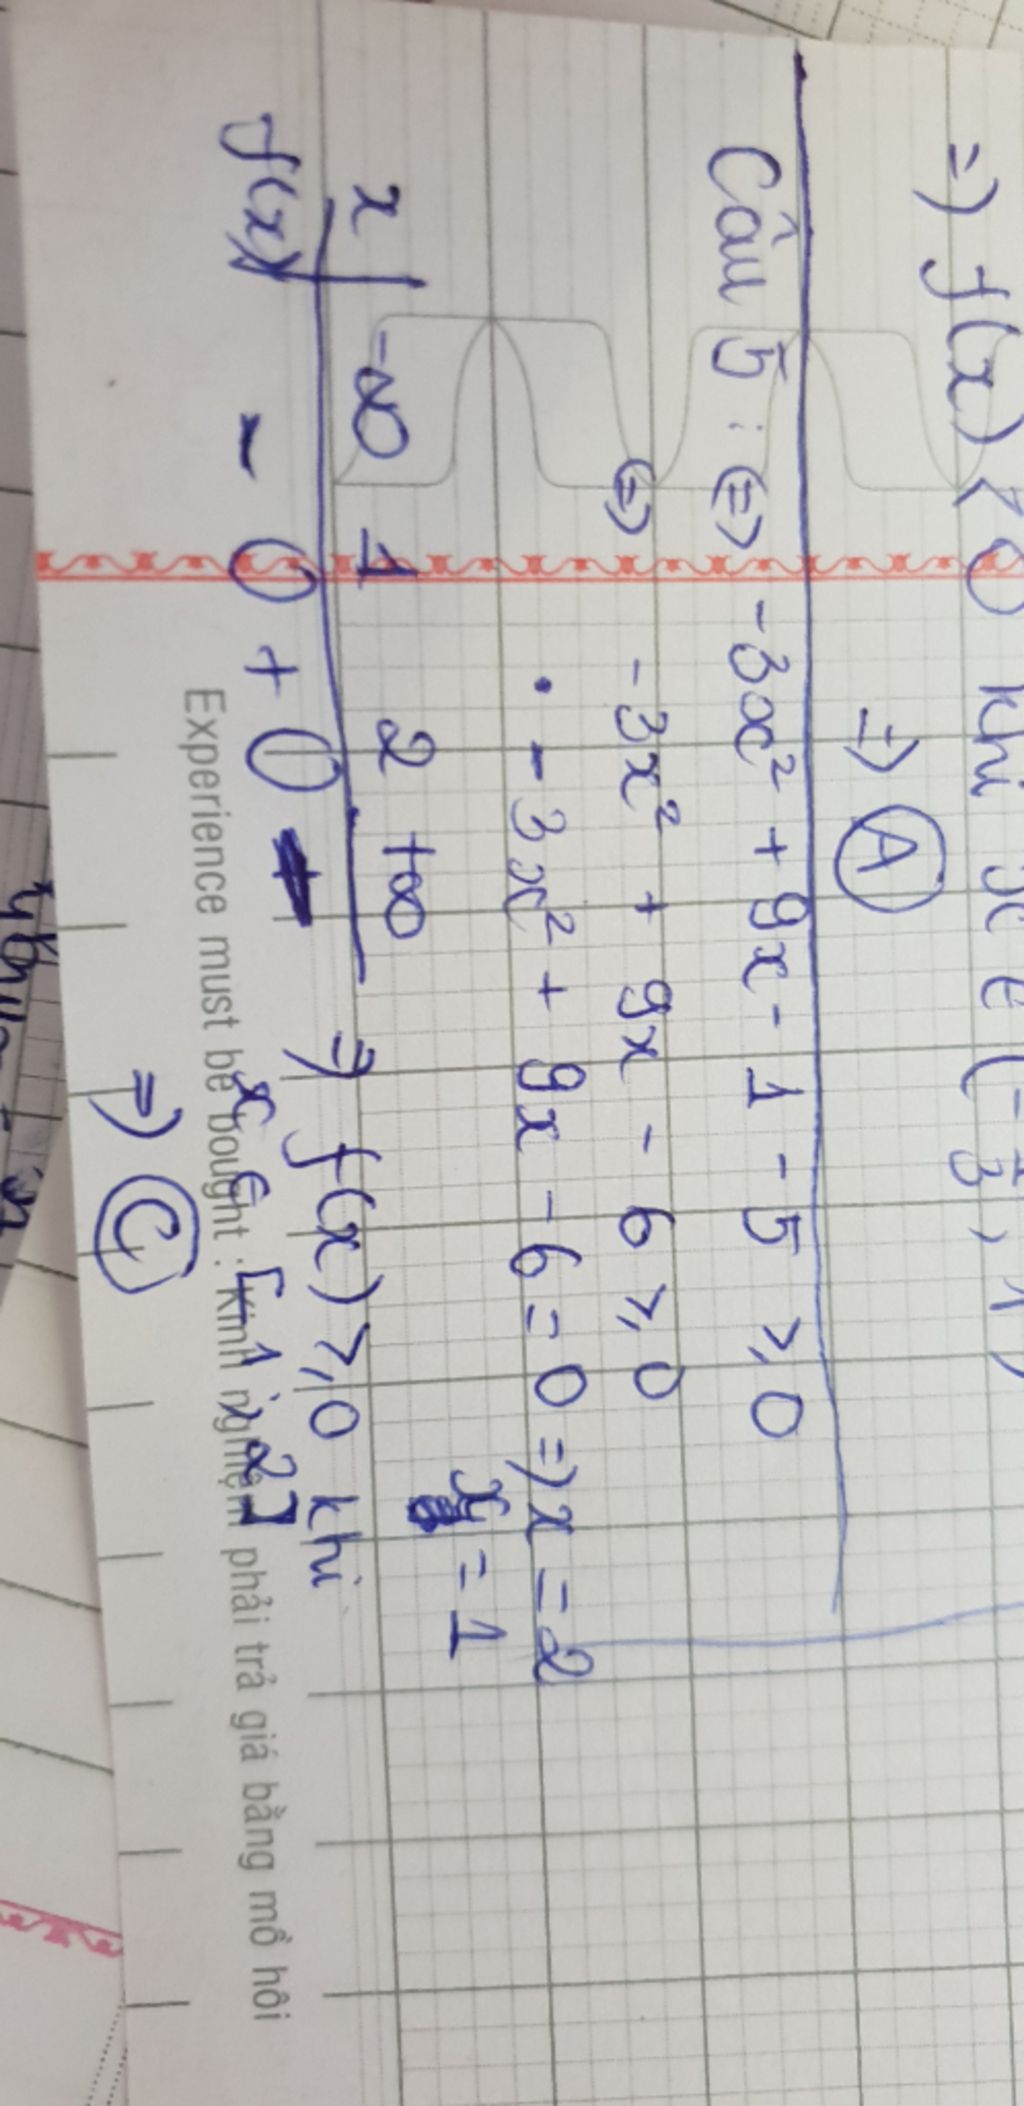 =) f(x) < 0 khi x ∈ (-1/3, 1)
=) A
Câu 5 : (=) -3x² + 9x - 1 - 5 ⩾ 0
(=) -3x² + 9x - 6 ⩾ 0
• -3x² + 9x - 6 = 0 =) x = 2
x = 1
x -∞ 1 2 +∞
f(x) - 0 + 0 -
=) f(x) ⩾ 0 khi
x ∈ [1; 2]
=) C
Experience must be bought : Kinh nghiệm phải trả giá bằng mồ hôi